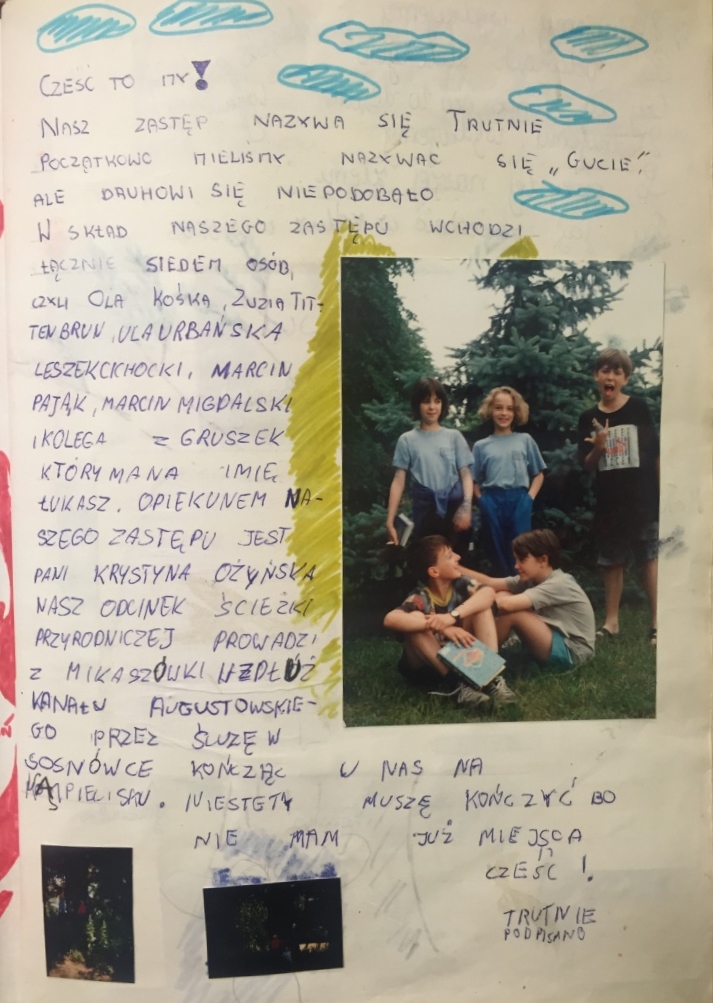 CZEŚĆ TO MY!
NASZ ZASTĘP NAZYWA SIĘ TRUTNIE
POCZĄTKOWO MIELIŚMY NAZYWAC SIĘ „GUCIE"
ALE DRUHOWI SIĘ NIEPODOBAŁO
W SKŁAD NASZEGO ZASTĘPU WCHODZI
ŁĄCZNIE SIEDEM OSÓB,
CZYLI OLA KOŚKA, ZUZIA TIT-
TENBRUN, ULA URBAŃSKA
LESZEK CICHOCKI, MARCIN
PAJĄK, MARCIN MIGDALSKI
I KOLEGA Z GRUSZEK
KTÓRY MA NA IMIĘ
ŁUKASZ. OPIEKUNEM NA-
SZEGO ZASTĘPU JEST
PANI KRYSTYNA OŻYŃSKA
NASZ ODCINEK ŚCIEŻKI
PRZYRODNICZEJ PROWADZI
Z MIKASZÓWKI WZDŁUŻ
KANAŁU AUGUSTOWSKIE-
GO PRZEZ ŚLUZĘ W
SOSNÓWCE KOŃCZĄC U NAS NA
KĄPIELISKU. NIESTETY MUSZĘ KOŃCZYĆ BO
NIE MAM JUŻ MIEJSCA
CZEŚĆ!
TRUTNIE
PODPISANO